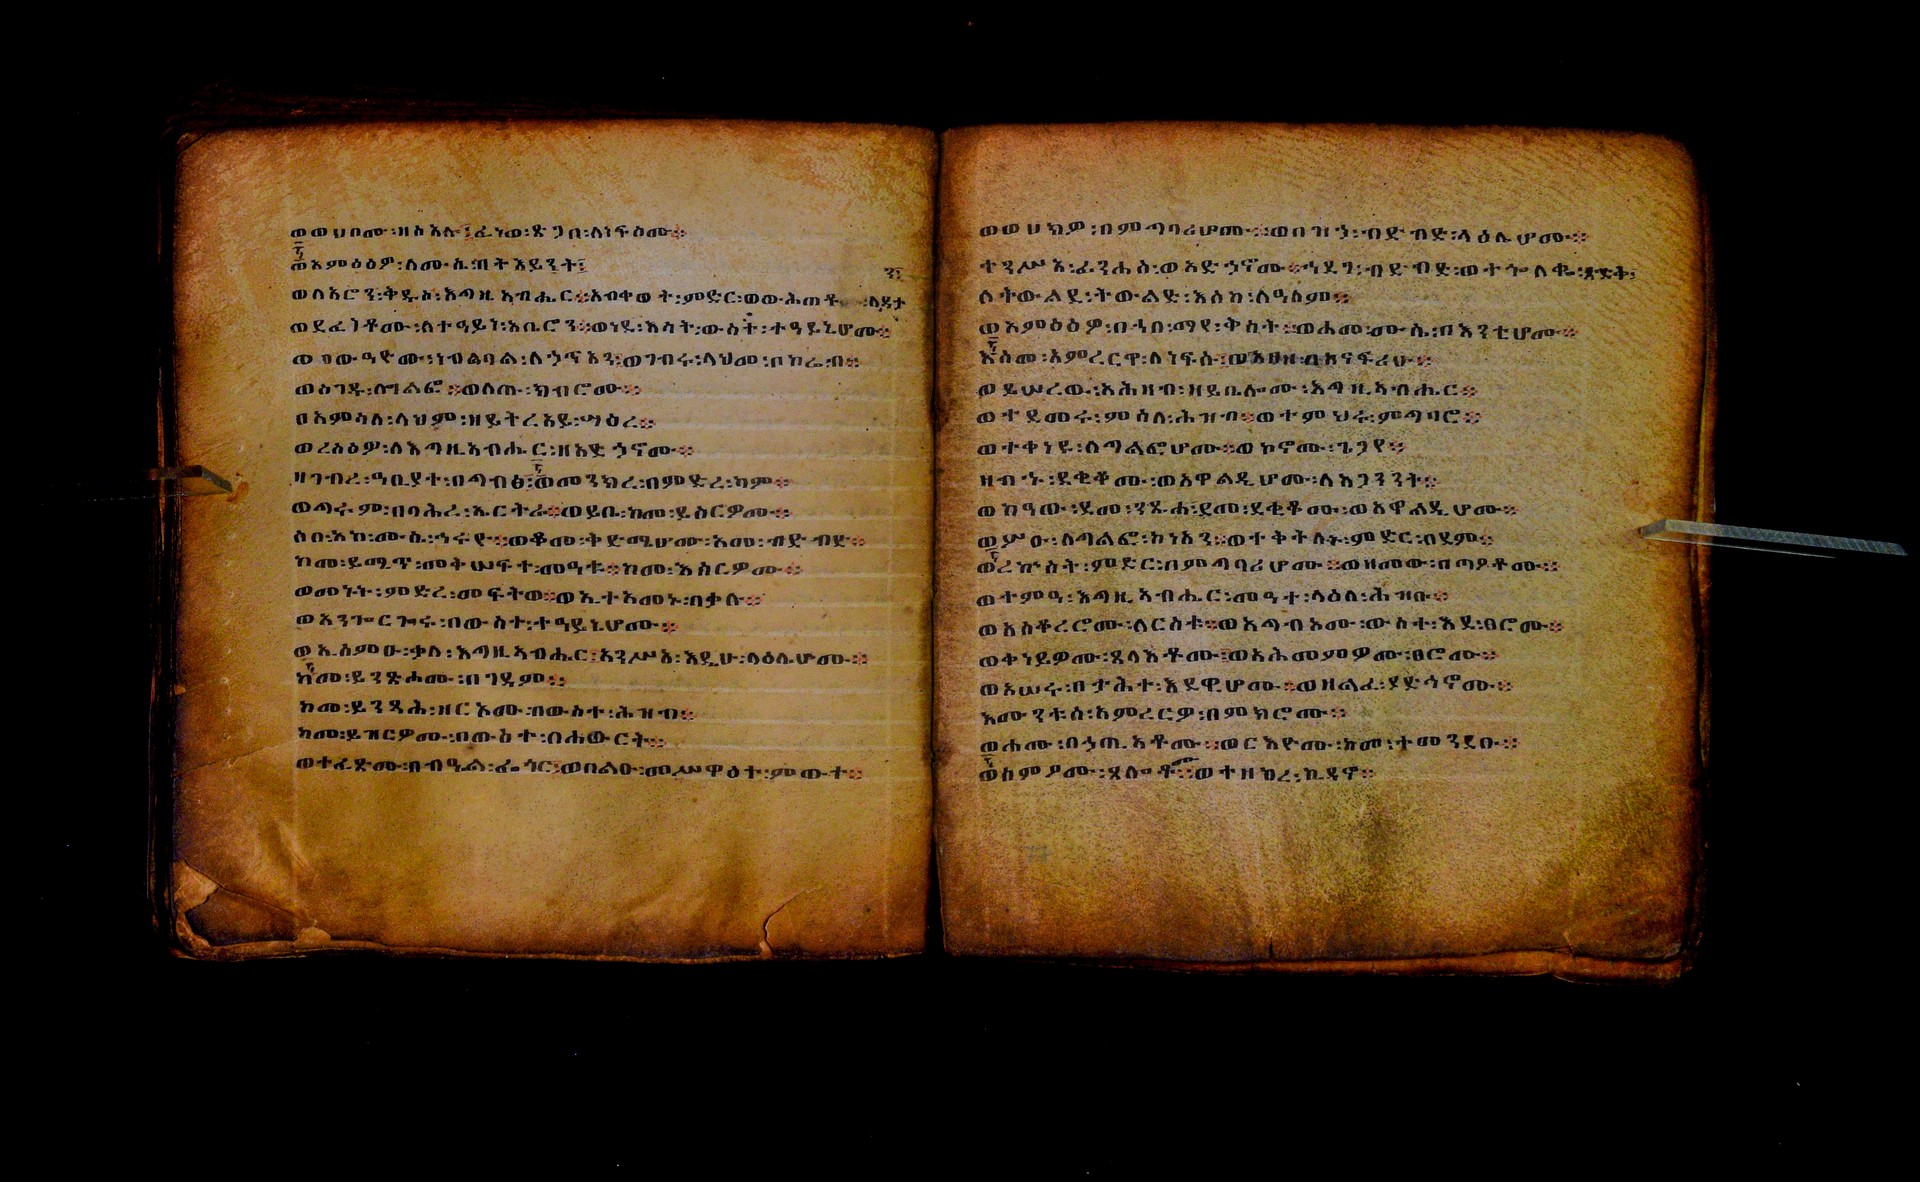 ወወሀቦሙ፡ዘስእሉ፤ፈነወ፡ጽጋበ፡ለነፍሶሙ።
ወአምዕዕዎ፡ለሙሴ፡በትእይንት፤
ወለአሮን፡ቅዱሰ፡እግዚአብሔር።አብቀወት፡ምድር፡ወውሕጠቶ ለዳታ
ወደፈነቶሙ፡ለተዓይነ፡አቤሮን።ወነደ፡እሳት፡ውስተ፡ተዓይኒሆሙ።
ነበልባል፡ለኃጥአን፡ወገብሩ፡ላህመ፡በኮሬብ።
ወሰገዱ፡ለግልፎ።ወለጡ፡ክብሮሙ።
በአምሳለ፡ላህም፡ዘይትረአይ፡ሣዕረ።
ወረስዕዎ፡ለእግዚአብሔር፡ዘአድኀኖሙ።
ዘገብረ፡ዓቢያተ፡በግብፅ፡ወመንክረ፡በምድረ፡ካም።
ወግሩም፡በባሕረ፡ኤርትራ።ወይቤ፡ከመ፡ይሰርዎሙ።
ሶበ፡አኮ፡ሙሴ፡ኅሩየ።ወቆመ፡ቅድሜሁሙ፡አመ፡ብድብድ።
ከመ፡ይሚጥ፡መቅሠፍተ፡መዓቱ።ከመ፡ኢሰርዎሙ።
ወመነኑ፡ምድረ፡መፍትወ።ወኢተአመኑ፡በቃሉ።
ወአንጐርጐሩ፡በውስተ፡ተዓይኒሆሙ።
ወኢሰምዑ፡ቃለ፡እግዚአብሔር፤አንሥአ፡እዴሁ፡ላዕሌሆሙ።
ከመ፡ይንጽሖሙ፡በገዳም።
ከመ፡ይንጻሕ፡ዘርአሙ፡በውስተ፡ሕዝብ።
ከመ፡ይዝርዎሙ፡በውስተ፡በሐውርት።
ወተፈጽሙ፡በብዔል፡ፌጎር፡ወበልዑ፡መሥዋዕተ፡ምውተ።
ወወሀክዎ፡በምግባሪሆሙ።ወበዝኀ፡ብድብድ፡ላዕሌሆሙ።
ተንሥአ፡ፊንሐስ፡ወአድኀኖሙ።ኀደገ፡ብድብድ፡ወተኈለቈ፡ጽድቅ፡
ለትውልደ፡ትውልድ፡እስከ፡ለዓለም።
ወአምዕዕዎ፡በኀበ፡ማየ፡ቅስት።ወሐመ፡ሙሴ፡በእንቲአሆሙ።
እስመ፡አምረርዋ፡ለነፍሱ፡ወአዘዘ፡በከናፍሪሁ።
ወይሠረው፡አሕዛብ፡ዘይቤሎሙ፡እግዚአብሔር።
ወተደመሩ፡ምስለ፡ሕዝብ።ወተምህሩ፡ምግባሮ።
ወተቀነዩ፡ለግልፎሆሙ።ወኮኖሙ፡ጌጋየ።
ዘብሑ፡ደቂቆሙ፡ወአዋልዲሆሙ፡ለአጋንንት።
ወከዓው፡ደመ፡ንጹሐ፡ደመ፡ደቂቆሙ፡ወአዋልዲሆሙ።
ወሦዑ፡ለግልፎ፡ከነአን።ወተቀትለት፡ምድር፡በደም።
ወረኵሰት፡ምድር፡በምግባሪሆሙ።ወዘመው፡በጣዖቶሙ።
ወተምዓ፡እግዚአብሔር፡መዓተ፡ላዕለ፡ሕዝቡ።
ወአስቆረሮሙ፡ለርስቱ።ወአግብአሙ፡ውስተ፡እደ፡ፀሮሙ።
ወቀነይዎሙ፡ጸላእቶሙ፡ወአሕመምዎሙ፡ፀሮሙ።
ወአሠሩ፡በታሕተ፡እደዊሆሙ።ወዘልፈ፡ያድኅኖሙ።
እሙንቱሰ፡አምረርዎ፡በምክሮሙ።
ወሐሙ፡በኃጢአቶሙ።ወርእዮሙ፡ከመ፡ተመንደቡ።
ወሰምዖሙ፡ጸሎቶሙ።ወተዘከረ፡ኪዳኖ።